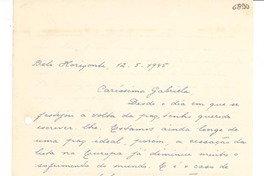 6890
Belo Horizonte, 12. 5. 1945
Caríssima Gabriela
Desde o dia em que se
festejou a volta da paz, tenho querido
escrever-lhe. Estamos ainda longe de
uma paz ideal, porem, a cessação da
luta na Europa já diminue muito o
sofrimento do mundo. E é o caso de